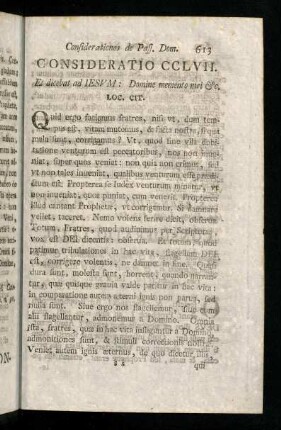 Considerationes de Pass. Dom. 613
CONSIDERATIO CCLVII.
Et dicebat ad IESVM: Domine memento mei &c.
LOC. CIT.
Quid ergo facimus fratres, nisi ut, dum tem-
pus est, vitam mutemus, & facta nostra, si qua
mala sunt, corrigamus? Vt, quod sine
venturum est peccatoribus, nos non
niat, super quos veniat: non quia non erimus, sed
vt non tales inueniat, qualibus venturum esse
dictum est: Propterea se Iudex venturum minatur, vt
non inueniat, quos puniat, cum venerit. Propterea
illud cantant Prophetæ, vt corrigamur. Si damnare
vellet, taceret. Nemo volens ferire dicit, obserua
Totum, Fratres, quod audiuimus per Scripturas,
vox est DEI dicentis: obserua. Et totum
patimur tribulationes in hac vita, flagellum DEI
est, corrigere volentis, ne damnet in fine. Quasi
dura sunt, molesta sunt, horrent, quando narran-
tur, quæ quisque grauia valde patitur in hac vita:
in comparatione autem æterni ignis non parua, sed
nulla sunt. Siue ergo nos flagellemur, siue cum
alii flagellentur, admonemur a Domino. Omnia
ista, fratres, quæ in hac vita infliguntur a Domino,
admonitiones sunt, & stimuli correctionis nostræ.
Veniet autem ignis æternus, de quo dicetur
qui